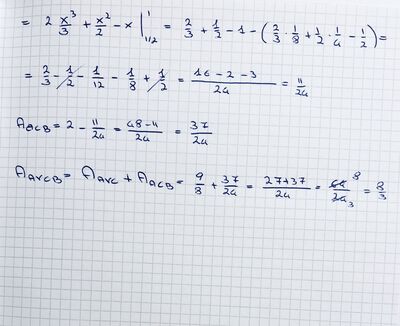 = 2 x³/3 + x²/2 - x |¹₁/₂ = 2/3 + 1/2 - 1 - (2/3 · 1/8 + 1/2 · 1/4 - 1/2) =
= 2/3 - 1/2 - 1/12 - 1/8 + 1/2 = (16 - 2 - 3)/24 = 11/24
A_ACB = 2 - 11/24 = (48 - 11)/24 = 37/24
A_AVCB = A_AVC + A_ACB = 9/8 + 37/24 = (27+37)/24 = 64/24 8/3 = 8/3